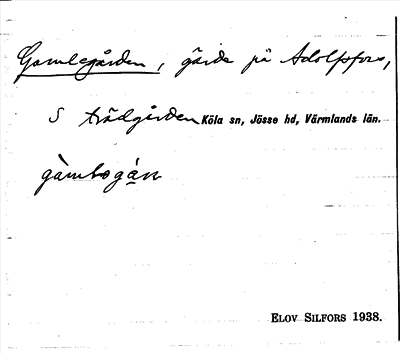 Gamlegården, gärde på Adolfsfors,
S trädgården Köla sn, Jösse hd, Värmlands län.
ELOV SILFORS 1938.